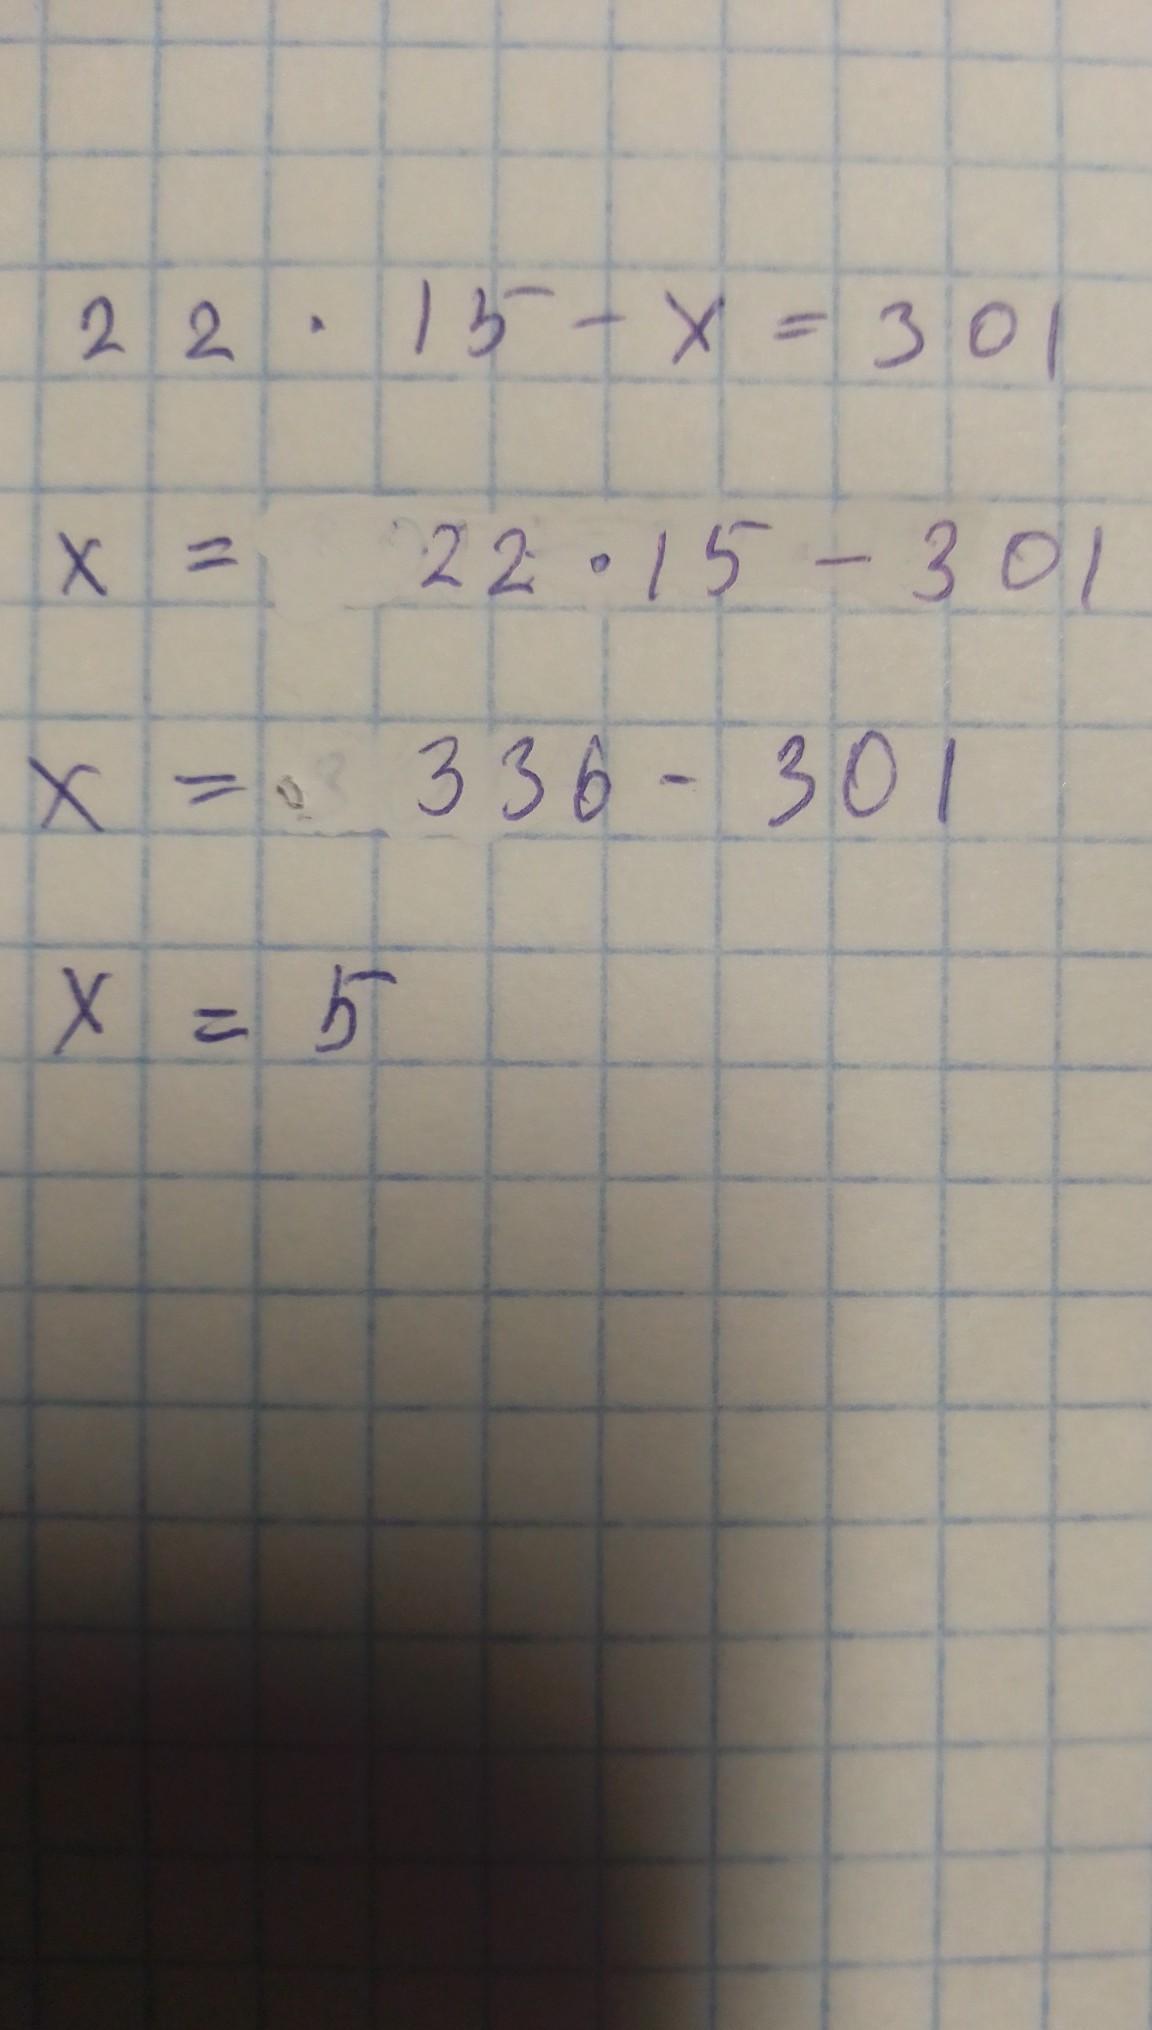 22 · 15 - x = 301
x = 22 · 15 - 301
x = 336 - 301
x = 5